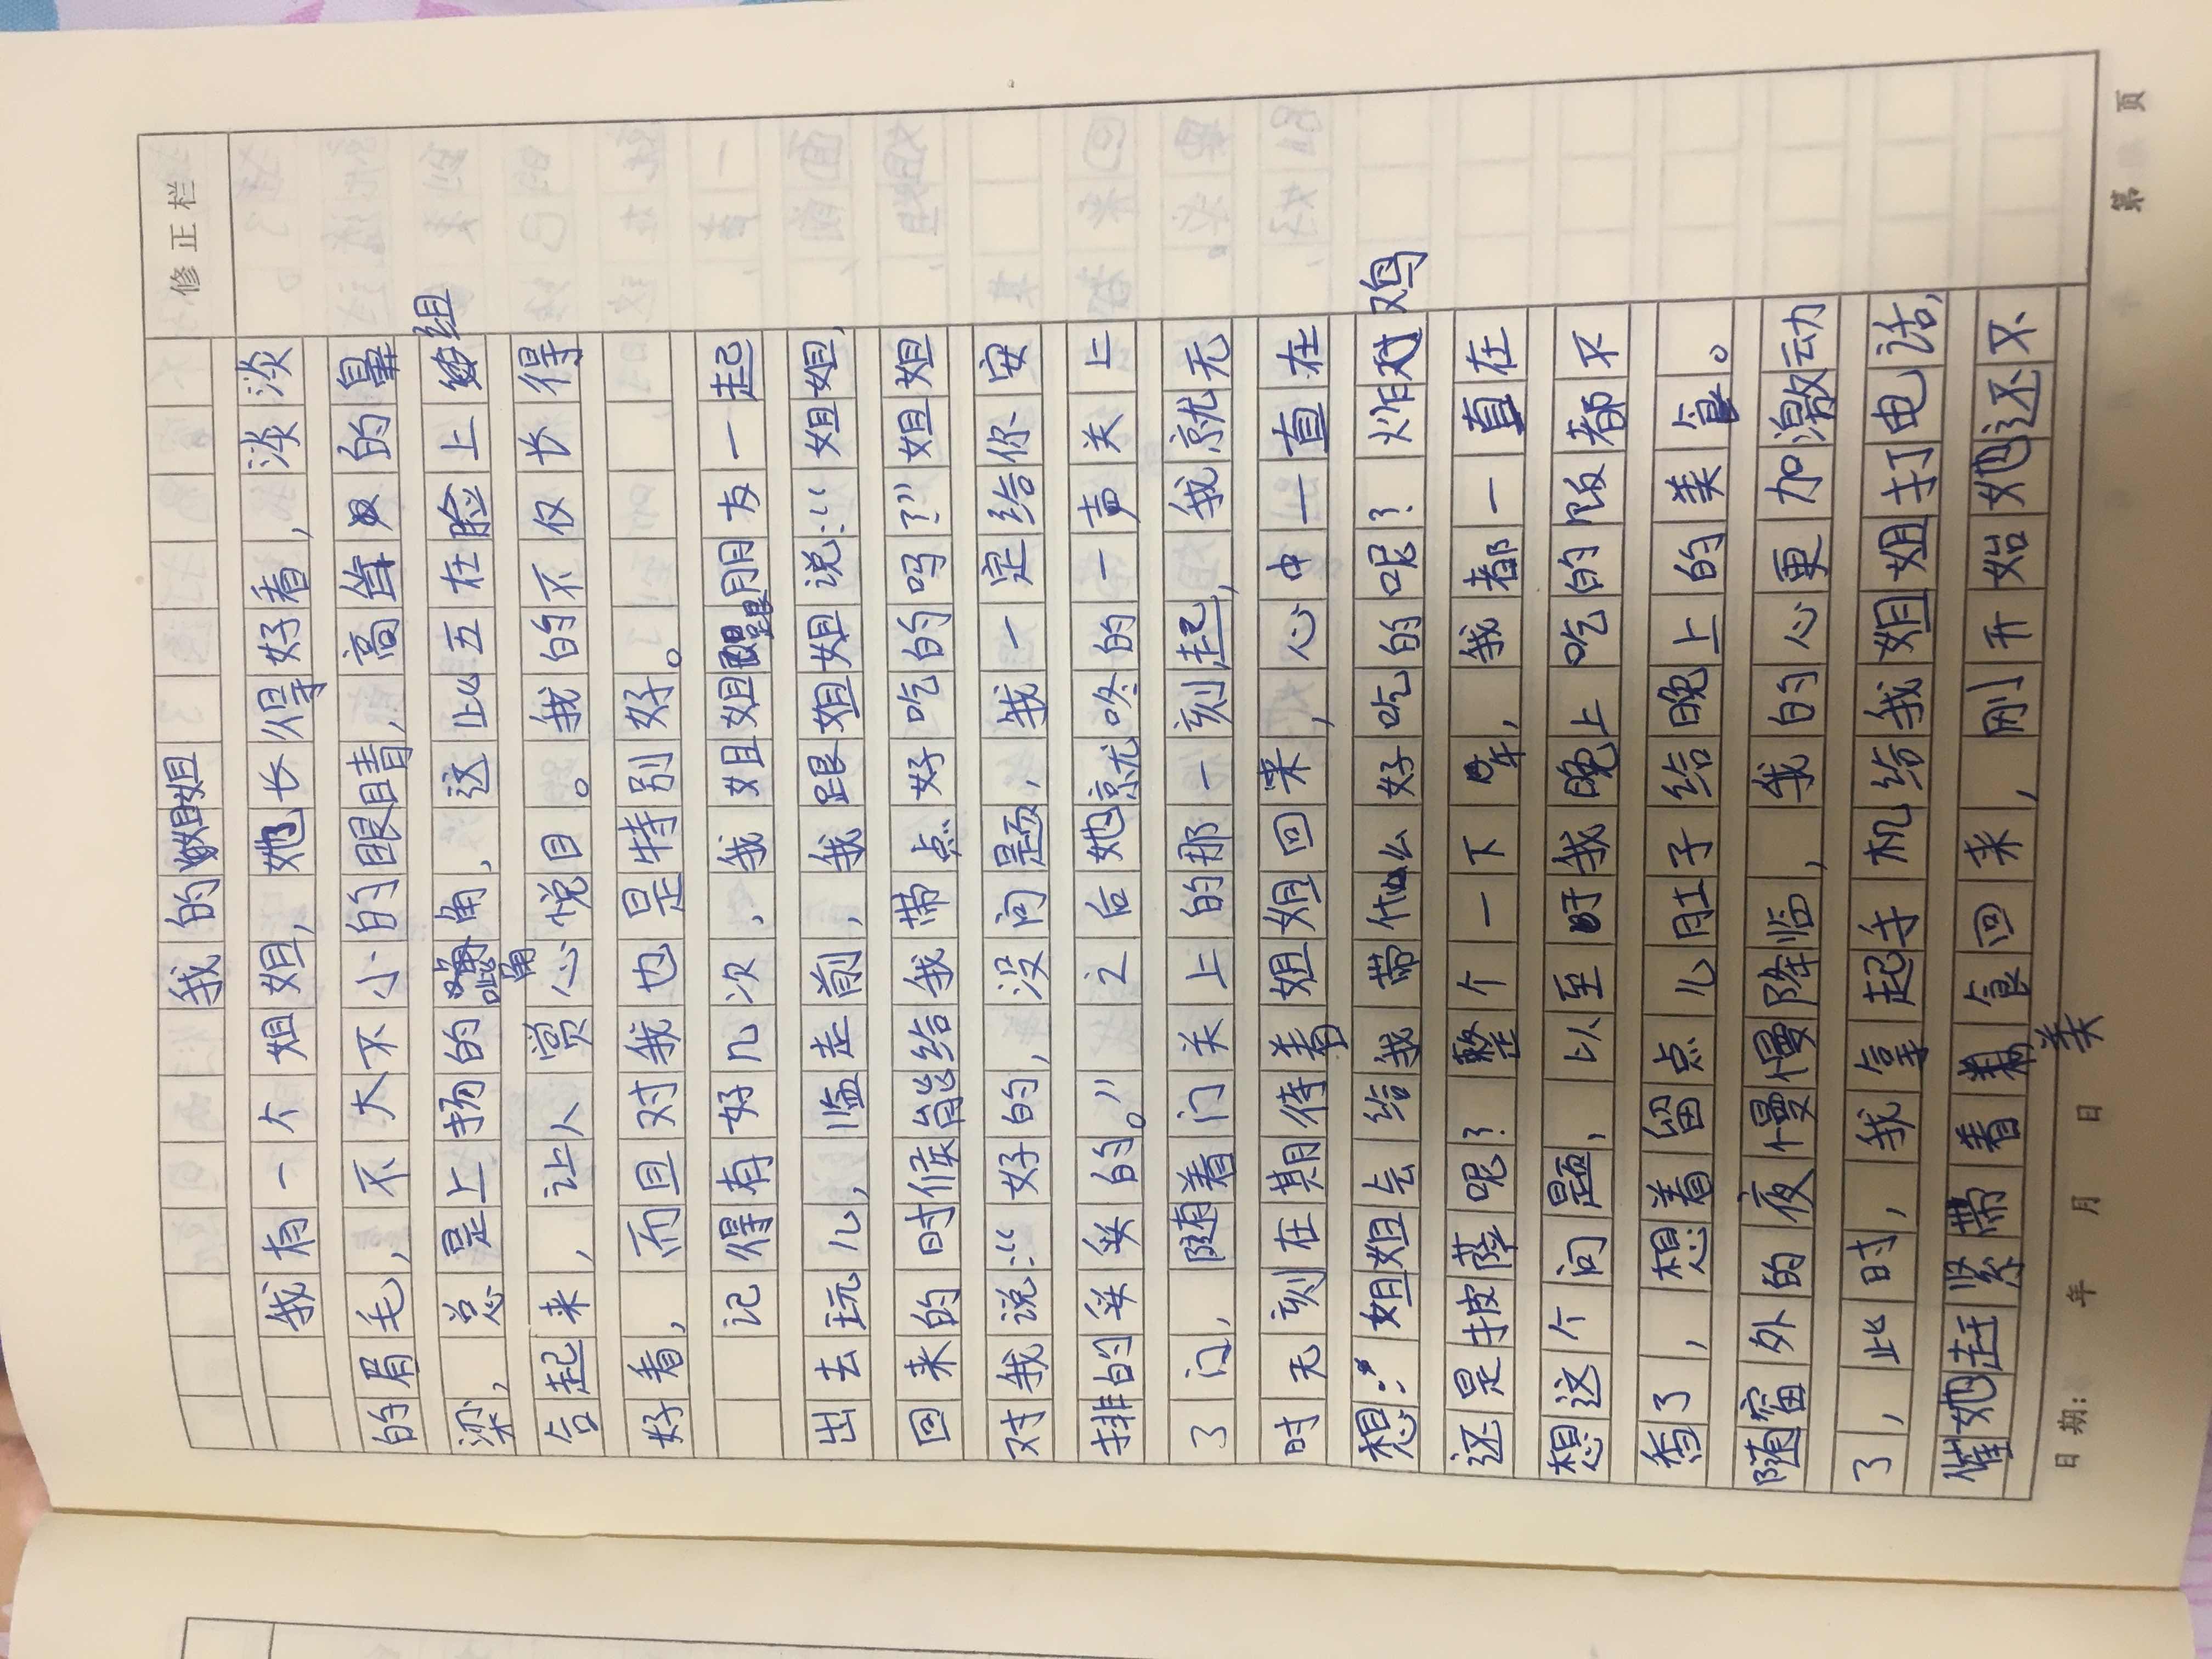 修正栏
我的姐姐
我有一个姐姐，她长得好看，淡淡
的眉毛，不大不小的眼睛，高耸的鼻
梁，总是上扬的嘴角，这些五在脸上组
合起来，让人赏心悦目。我的不仅长得
好看，而且对我也是特别好。
记得有好几次，我姐姐跟朋友一起
出去玩儿，临走前，我跟姐姐说：“姐姐，
回来的时候能给我带点好吃的吗？”姐姐
对我说：“好的，没问题，我一定给你安
排的妥妥的。”之后她就咚的一声关上
了门，随着门关上的那一刻起，我就无
时无刻在期待着姐姐回来，心中一直在
想：姐姐会给我带什么好吃的呢？炸鸡
还是披萨呢？整个一下午，我都一直在
想这个问题，以至于我晚上吃的饭都不
香了，想着留点儿肚子给晚上的美食。
随窗外的夜慢慢降临，我的心更加激动
了，此时，我拿起手机给我姐姐打电话，
催她赶紧带着美食回来，刚开始她还不
日期： 年 月 日
第 页